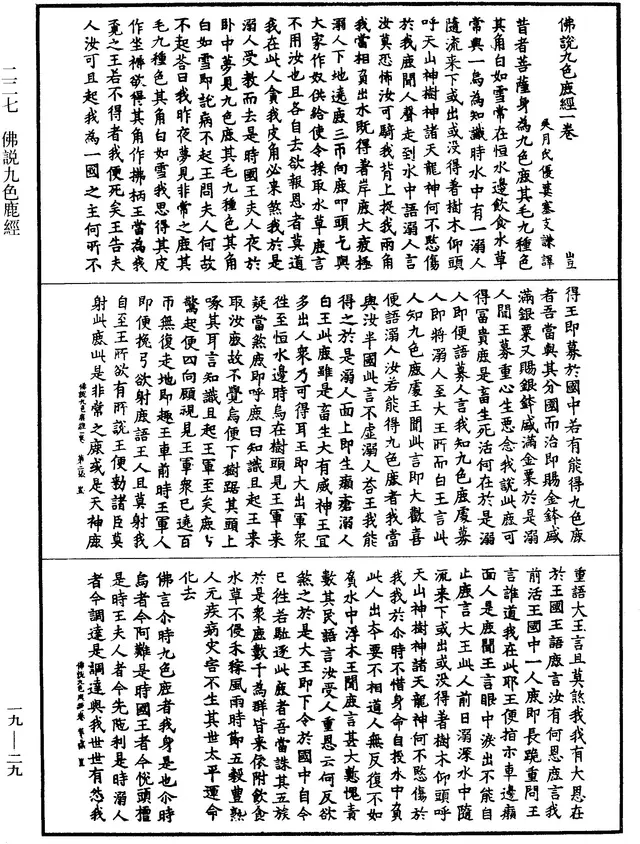 佛說九色鹿經一卷
吳月氏優婆塞支謙譯
昔者菩薩身為九色鹿其毛九種色
其角白如雪常在恒水邊飲食水草
常與一烏為知識時水中有一溺人
隨流來下或出或沒得著樹木仰頭
呼天山神樹神諸天龍神何不愍傷
於我鹿聞人聲走到水中語溺人言
汝莫恐怖汝可騎我背上捉我兩角
我當相負出水既得著岸鹿大疲極
溺人下地遶鹿三帀向鹿叩頭乞與
大家作奴供給使令採取水草鹿言
不用汝也且各自去欲報恩者莫道
我在此人貪我皮角必來煞我於是
溺人受教而去是時國王夫人夜於
卧中夢見九色鹿其毛九種色其角
白如雪即託病不起王問夫人何故
不起荅曰我昨夜夢見非常之鹿其
毛九種色其角白如雪我思得其皮
作坐褥欲得其角作拂柄王當為我
覓之王若不得者我便死矣王告夫
人汝可且起我為一國之主何所不
得王即募於國中若有能得九色鹿
者吾當與其分國而治即賜金鉢盛
滿銀粟又賜銀鉢盛滿金粟於是溺
人聞王募重心生惡念我說此鹿可
得冨貴鹿是畜生死活何在於是溺
人即便語募人言我知九色鹿處募
人即將溺人至大王所而白王言此
人知九色鹿處王聞此言即大歡喜
便語溺人汝若能得九色鹿者我當
與汝半國此言不虛溺人荅王我能
得之於是溺人面上即生癩瘡溺人
白王此鹿雖是畜生大有威神王宜
多出人衆乃可得耳王即大出軍衆
往至恒水邊時烏在樹頭見王軍來
疑當煞鹿即呼鹿曰知識且起王來
取汝鹿故不覺烏便下樹踞其頭上
啄其耳言知識且起王軍至矣鹿方
驚起便四向顧視見王軍衆已遶百
帀無復走地即趣王車前時王軍人
即便挽弓欲射鹿語王人且莫射我
自至王所欲有所說王便勑諸臣莫
射此鹿此是非常之鹿或是天神鹿
重語大王言且莫煞我我有大恩在
於王國王語鹿言汝有何恩鹿言我
前活王國中一人鹿即長跪重問王
言誰道我在此耶王便指示車邊癩
面人是鹿聞王言眼中淚出不能自
止鹿言大王此人前日溺深水中隨
流來下或出或沒得著樹木仰頭呼
天山神樹神諸天龍神何不愍傷於
我我於尒時不惜身命自投水中負
此人出本要不相道人無反復不如
負水中浮木王聞鹿言甚大慙愧責
數其民語言汝受人重恩云何反欲
煞之於是大王即下令於國中自今
已往若駈逐此鹿者吾當誅其五族
於是衆鹿數千為羣皆來依附飲食
水草不侵禾稼風雨時節五穀豐熟
人无疾病灾害不生其世太平運命
化去
佛言尒時九色鹿者我身是也尒時
烏者今阿難是時國王者今悅頭檀
是時王夫人者今先陁利是時溺人
者今調達是調達與我世世有怨我
二二七 佛說九色鹿經
一九—二九